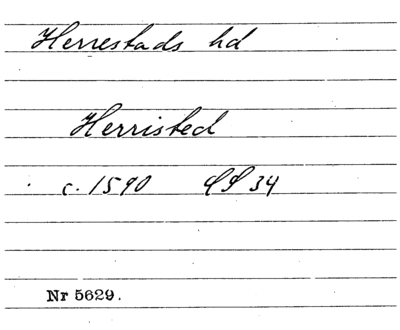 Herrestads hd
Herristed
c. 1590 SS 34
Nr 5629.